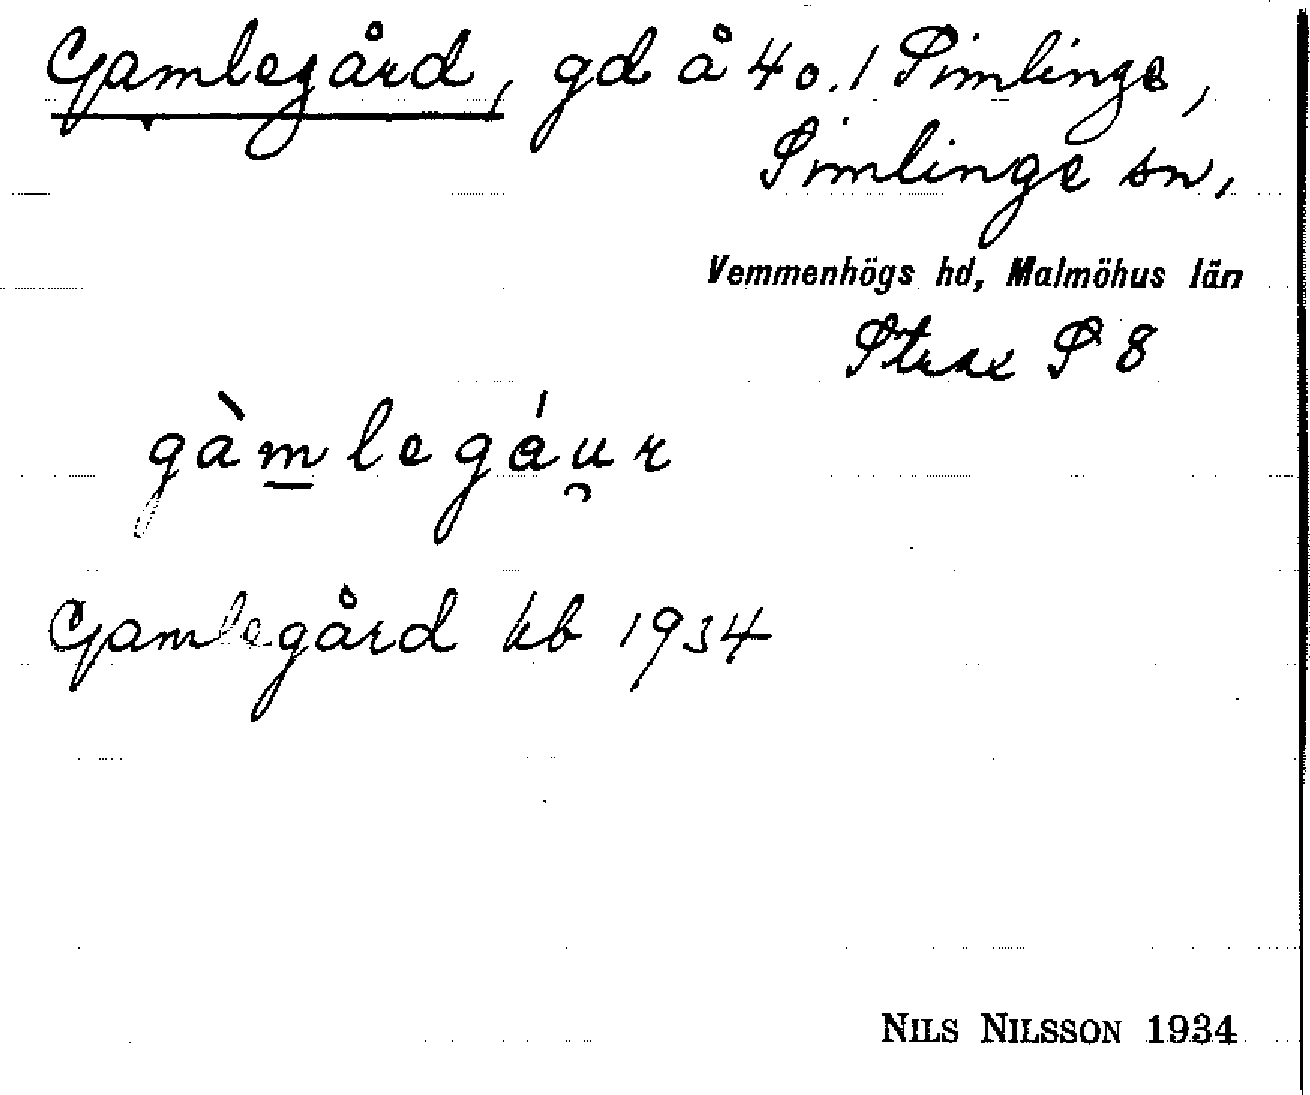 Gamlegård, gd å 4 o. 1 Simlinge,
Simlinge sn,
Vemmenhögs hd, Malmöhus län
Strax S 8
gàm̲legáu̯r
Gamlegård kb 1934
NILS NILSSON 1934